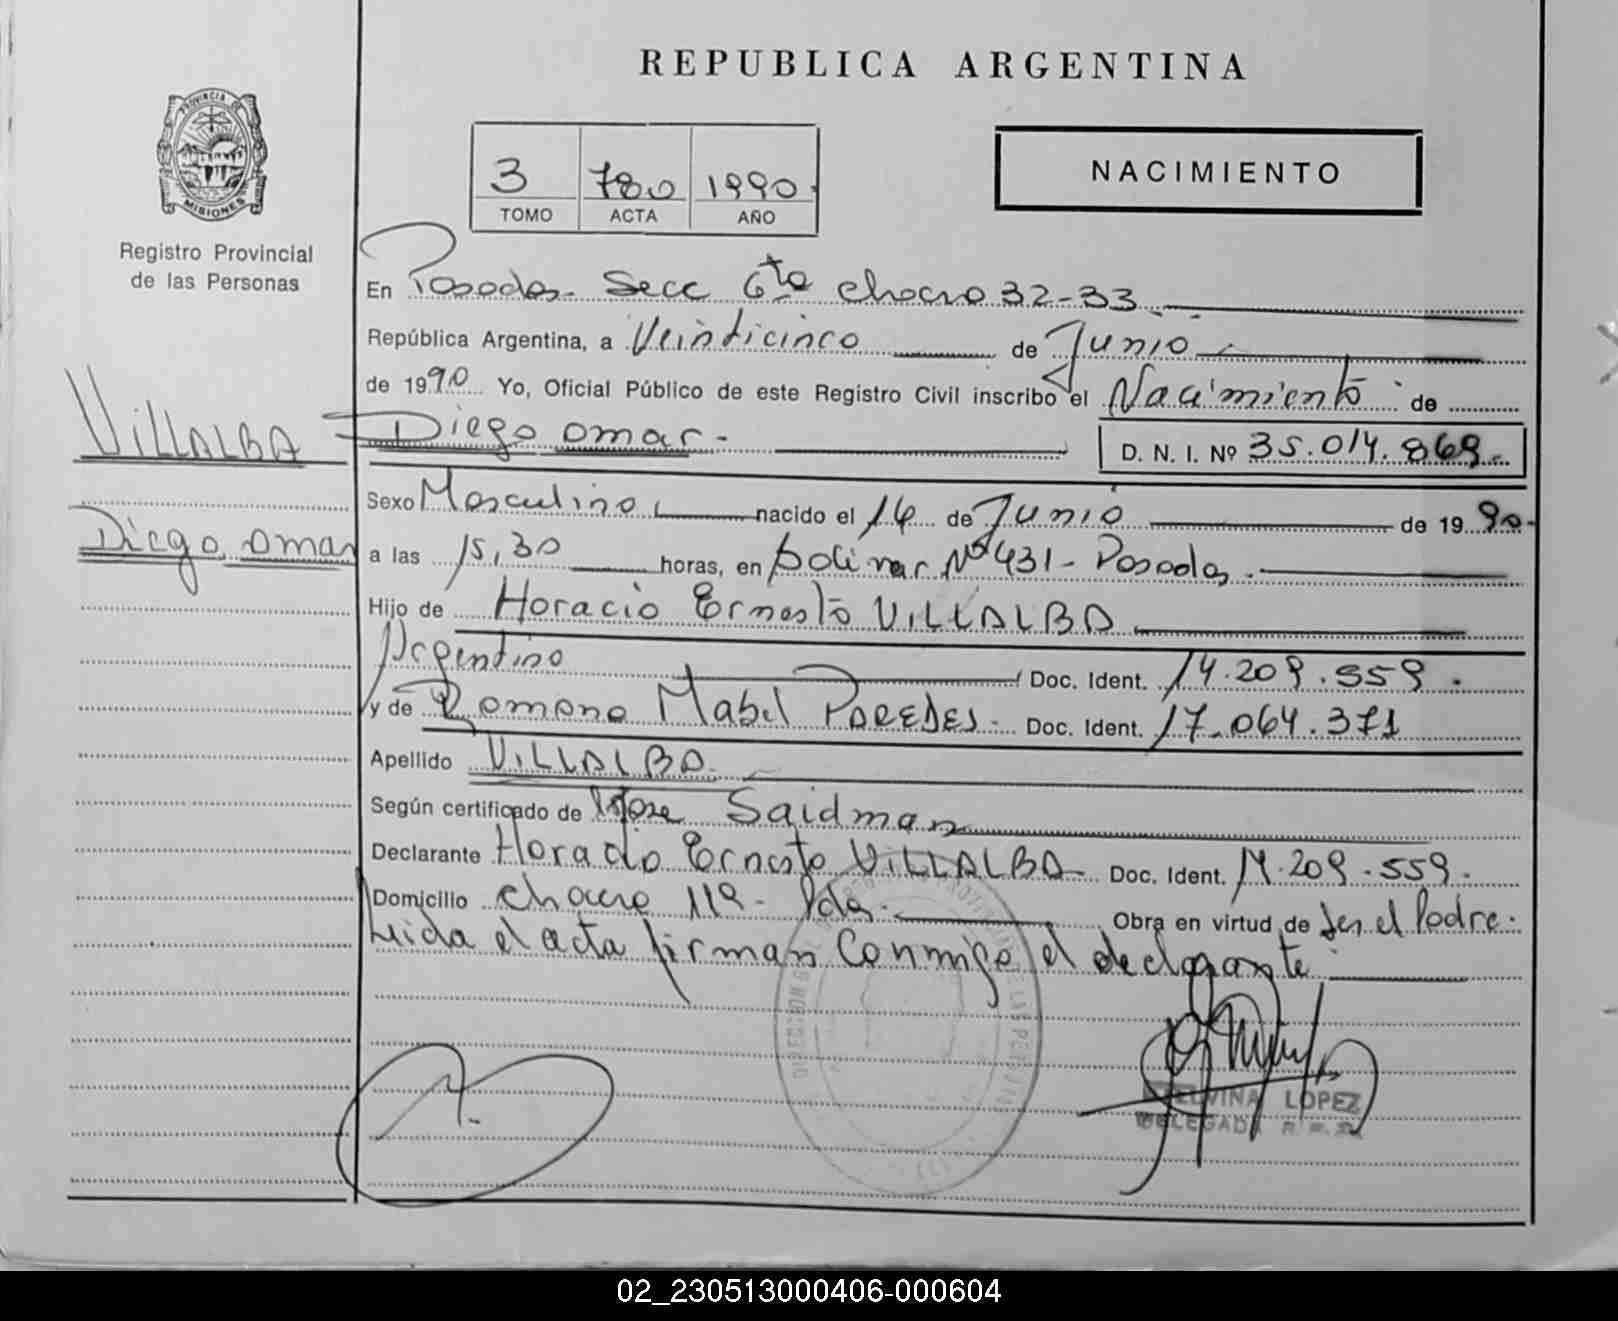 REPUBLICA ARGENTINA
PROVINCIA DE
MISIONES
Registro Provincial
de las Personas
3 780 1990
TOMO ACTA AÑO
NACIMIENTO
En Posadas Secc 6ta chacra 32-33
República Argentina, a Veinticinco de Junio
de 1990 Yo, Oficial Público de este Registro Civil inscribo el Nacimiento de
VILLALBA
Diego Omar
Diego omar.-
D. N. I. Nº 35.014.869.-
Sexo Masculino nacido el 14 de Junio de 1990.
a las 15,30 horas, en bolivar Nº 431 - Posadas.
Hijo de Horacio Ernesto VILLALBA
Argentino / Doc. Ident. 14.209.559.
y de Romona Mabel PAREDES - Doc. Ident. 17.064.371
Apellido VILLALBA
Según certificado de Saidman
Declarante Horacio Ernesto VILLALBA Doc. Ident. 14.209.559.
Domicilio chacra 112 - Pdas. Obra en virtud de Ser el Padre.
Leida el acta firman Conmigo el declarante
LOPEZ
DELEGADA R. P. P.
02_230513000406-000604